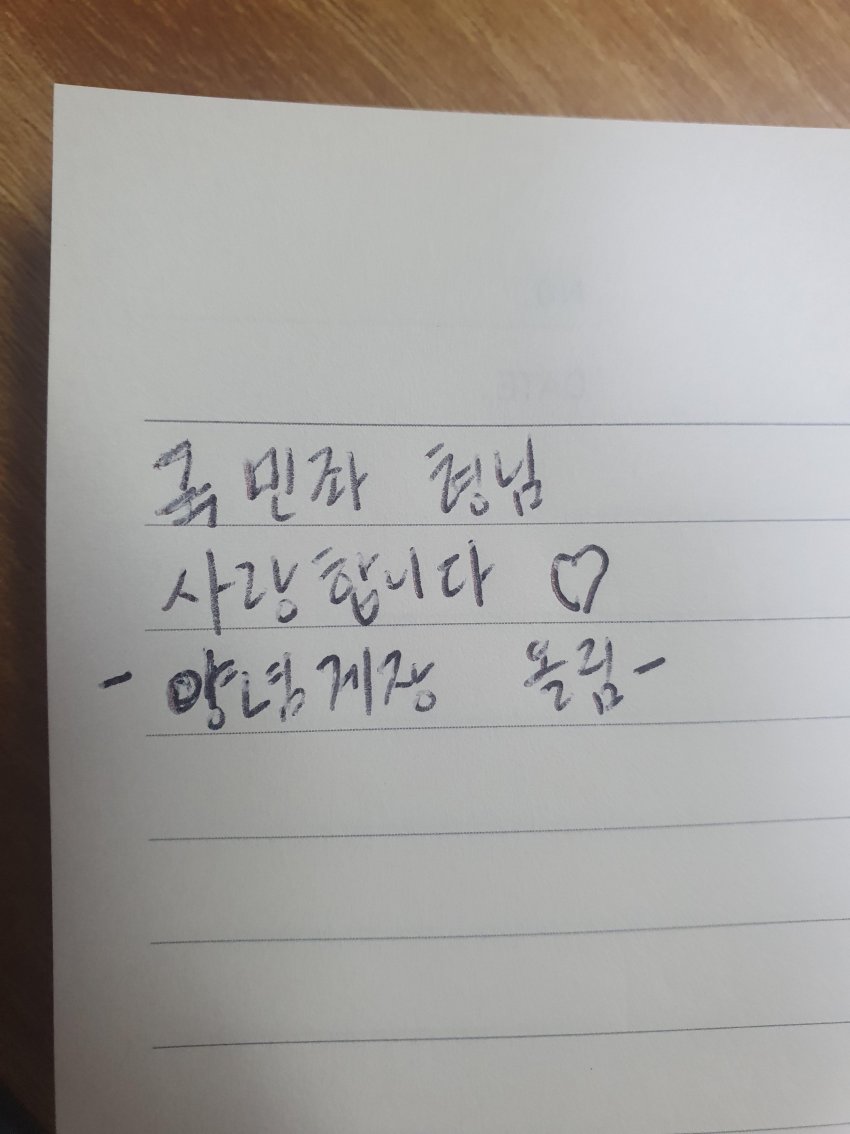 국민좌 형님
사랑합니다 ♡
- 양념게장 올림 -